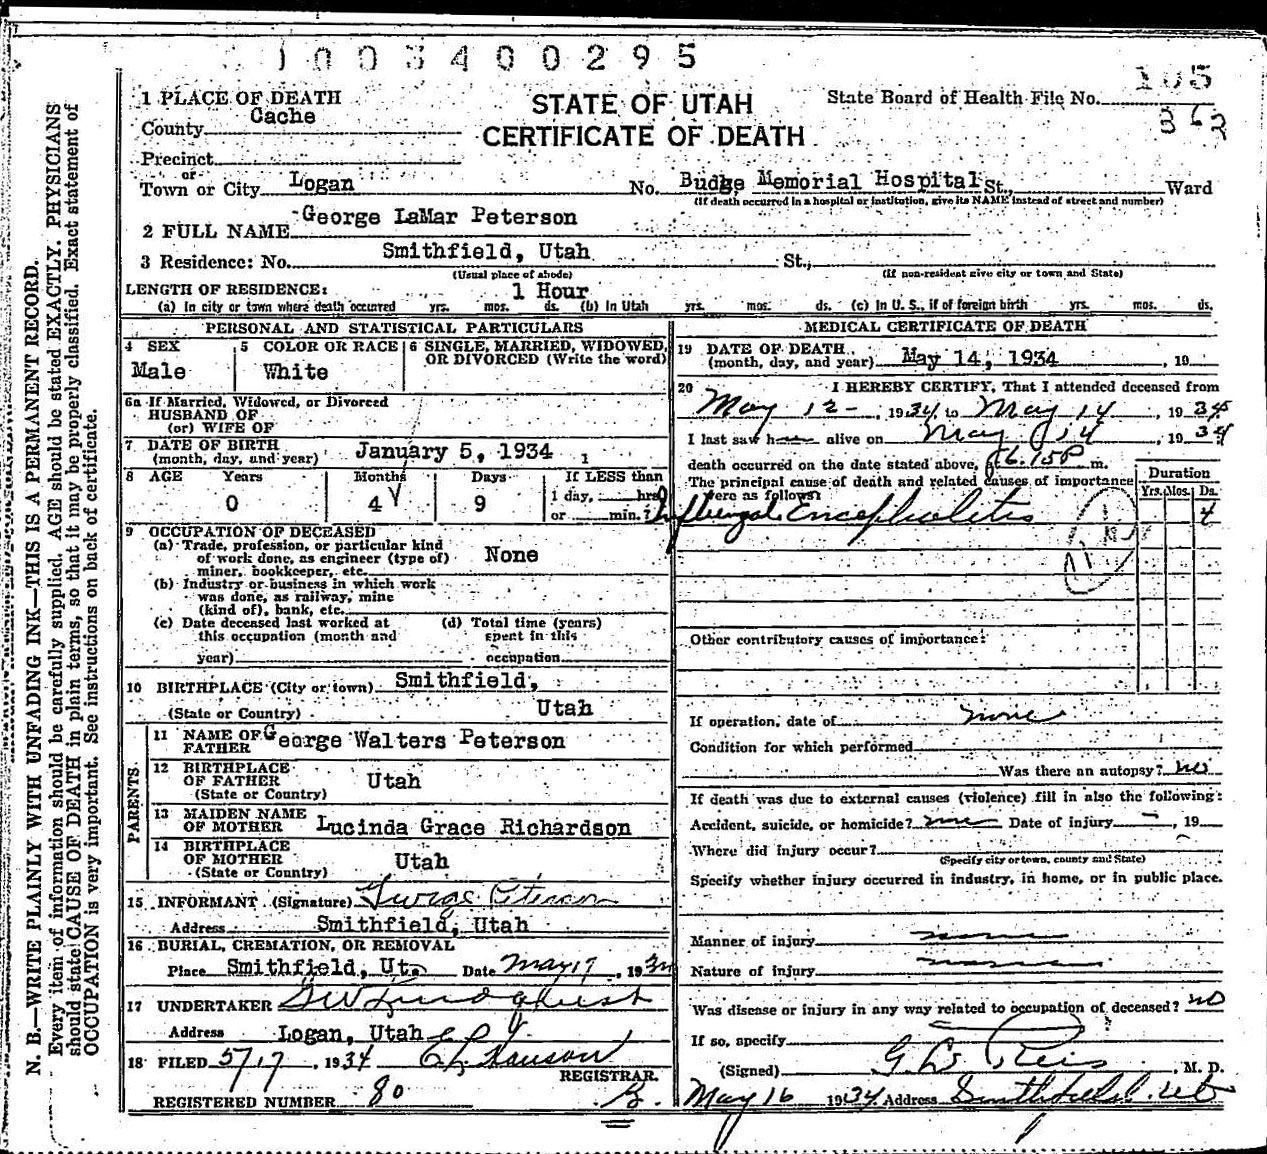 1003400295
105
1 PLACE OF DEATH
STATE OF UTAH
State Board of Health File No.
County Cache
CERTIFICATE OF DEATH
363
Precinct
or
Town or City Logan No. Budge Memorial Hospital St., Ward
(If death occurred in a hospital or institution, give its NAME instead of street and number)
2 FULL NAME George LaMar Peterson
3 Residence: No. Smithfield, Utah St.,
(Usual place of abode) (If non-resident give city or town and State)
LENGTH OF RESIDENCE: 1 Hour
(a) In city or town where death occurred yrs. mos. ds. (b) In Utah yrs. mos. ds. (c) In U. S., if of foreign birth yrs. mos. ds.
PERSONAL AND STATISTICAL PARTICULARS
4 SEX Male
5 COLOR OR RACE White
6 SINGLE, MARRIED, WIDOWED, OR DIVORCED (Write the word)
6a If Married, Widowed, or Divorced
HUSBAND OF
(or) WIFE OF
7 DATE OF BIRTH
(month, day, and year) January 5, 1934
8 AGE Years Months Days If LESS than
0 4 9 1 day, hrs.
or min.
9 OCCUPATION OF DECEASED
(a) Trade, profession, or particular kind
of work done, as engineer (type of)
miner, bookkeeper, etc. None
(b) Industry or business in which work
was done, as railway, mine
(kind of), bank, etc.
(c) Date deceased last worked at
this occupation (month and
year)
(d) Total time (years)
spent in this
occupation
10 BIRTHPLACE (City or town) Smithfield,
(State or Country) Utah
PARENTS
11 NAME OF
FATHER George Walters Peterson
12 BIRTHPLACE
OF FATHER Utah
(State or Country)
13 MAIDEN NAME
OF MOTHER Lucinda Grace Richardson
14 BIRTHPLACE
OF MOTHER Utah
(State or Country)
15 INFORMANT (Signature) George Peterson
Address Smithfield, Utah
16 BURIAL, CREMATION, OR REMOVAL
Place Smithfield, Ut. Date May 17, 1934
17 UNDERTAKER G W Lindquist
Address Logan, Utah
18 FILED 5/17, 1934
REGISTRAR.
REGISTERED NUMBER 80
MEDICAL CERTIFICATE OF DEATH
19 DATE OF DEATH
(month, day, and year) May 14, 1934, 19
20 I HEREBY CERTIFY, That I attended deceased from
May 12, 1934, to May 14, 1934
I last saw h alive on May 14, 1934
death occurred on the date stated above, at 6:15P m.
The principal cause of death and related causes of importance
were as follows:
Duration
Yrs. Mos. Ds.
Influenzal Encephalitis 4
Other contributory causes of importance:
If operation, date of none
Condition for which performed
Was there an autopsy? no
If death was due to external causes (violence) fill in also the following:
Accident, suicide, or homicide? Date of injury , 19
Where did injury occur?
(Specify city or town, county and State)
Specify whether injury occurred in industry, in home, or in public place.
Manner of injury
Nature of injury
Was disease or injury in any way related to occupation of deceased? no
If so, specify
(Signed) , M. D.
May 16 1934 Address Smithfield, Ut
N. B.—WRITE PLAINLY WITH UNFADING INK—THIS IS A PERMANENT RECORD.
Every item of information should be carefully supplied. AGE should be stated EXACTLY. PHYSICIANS
should state CAUSE OF DEATH in plain terms, so that it may be properly classified. Exact statement of
OCCUPATION is very important. See instructions on back of certificate.